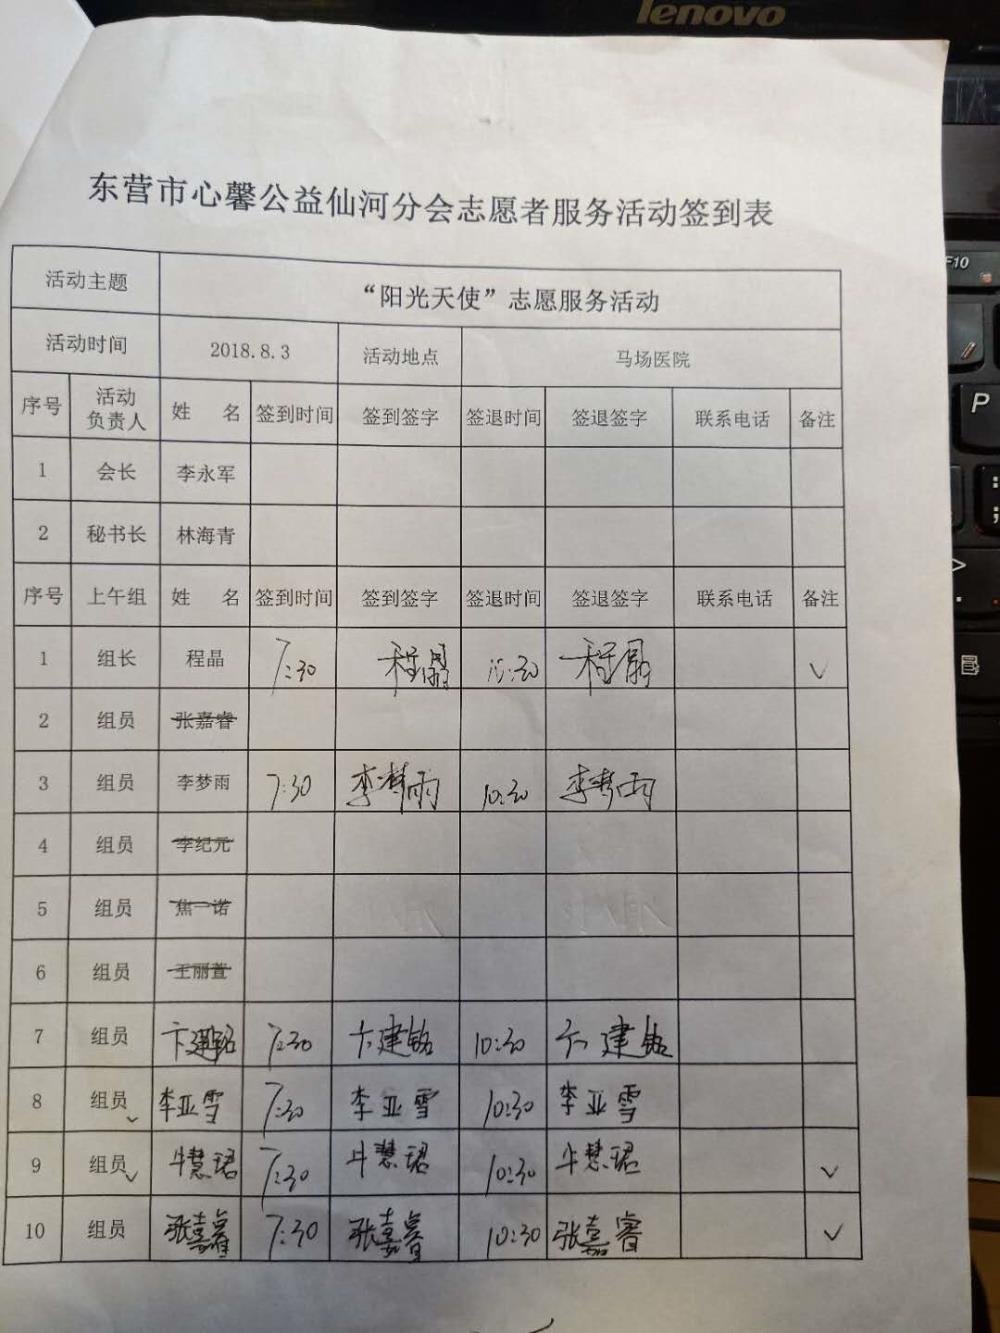 lenovo
东营市心馨公益仙河分会志愿者服务活动签到表
活动主题 “阳光天使”志愿服务活动
活动时间 2018.8.3 活动地点 马场医院
序号 活动负责人 姓 名 签到时间 签到签字 签退时间 签退签字 联系电话 备注
1 会长 李永军
2 秘书长 林海青
序号 上午组 姓 名 签到时间 签到签字 签退时间 签退签字 联系电话 备注
1 组长 程晶 7:30 程晶 10:30 程晶 ✓
2 组员 张嘉睿
3 组员 李梦雨 7:30 李梦雨 10:30 李梦雨
4 组员 李纪元
5 组员 焦一诺
6 组员 王丽萱
7 组员 卞建铭 7:30 卞建铭 10:30 卞建铭
8 组员 ✓ 李亚雪 7:30 李亚雪 10:30 李亚雪
9 组员 ✓ 牛慧珺 7:30 牛慧珺 10:30 牛慧珺 ✓
10 组员 张嘉睿 7:30 张嘉睿 10:30 张嘉睿 ✓
F10
P